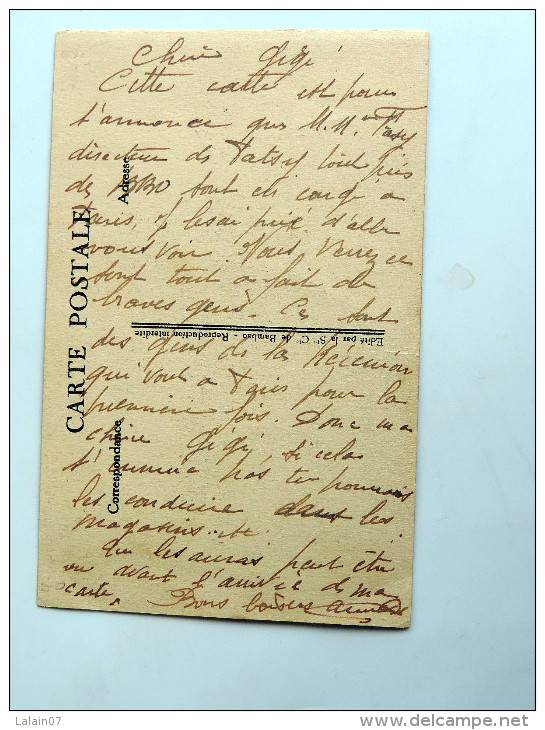 Chère Gigi
Cette carte est pour
t'annoncer que M. Mme
directeur de Tatsy tout près
de sont en congé a
Paris, je les ai prié d'aller
vous voir. Vous verrez ce
sont tout a fait de
braves gens. Ce sont
des gens de la
qui vont a Paris pour la
première fois. Donc ma
chère Gigi, si cela
t'ennuie pas tu pourrais
les conduire dans les
magasins. etc
Tu les auras peut être
vu avant l'arrivée de ma
carte. Bons baisers
CARTE POSTALE
Adresse
Correspondance
Edité par la Sté Cle de Bambao - Reproduction interdite
Lalain07
www.delcampe.net